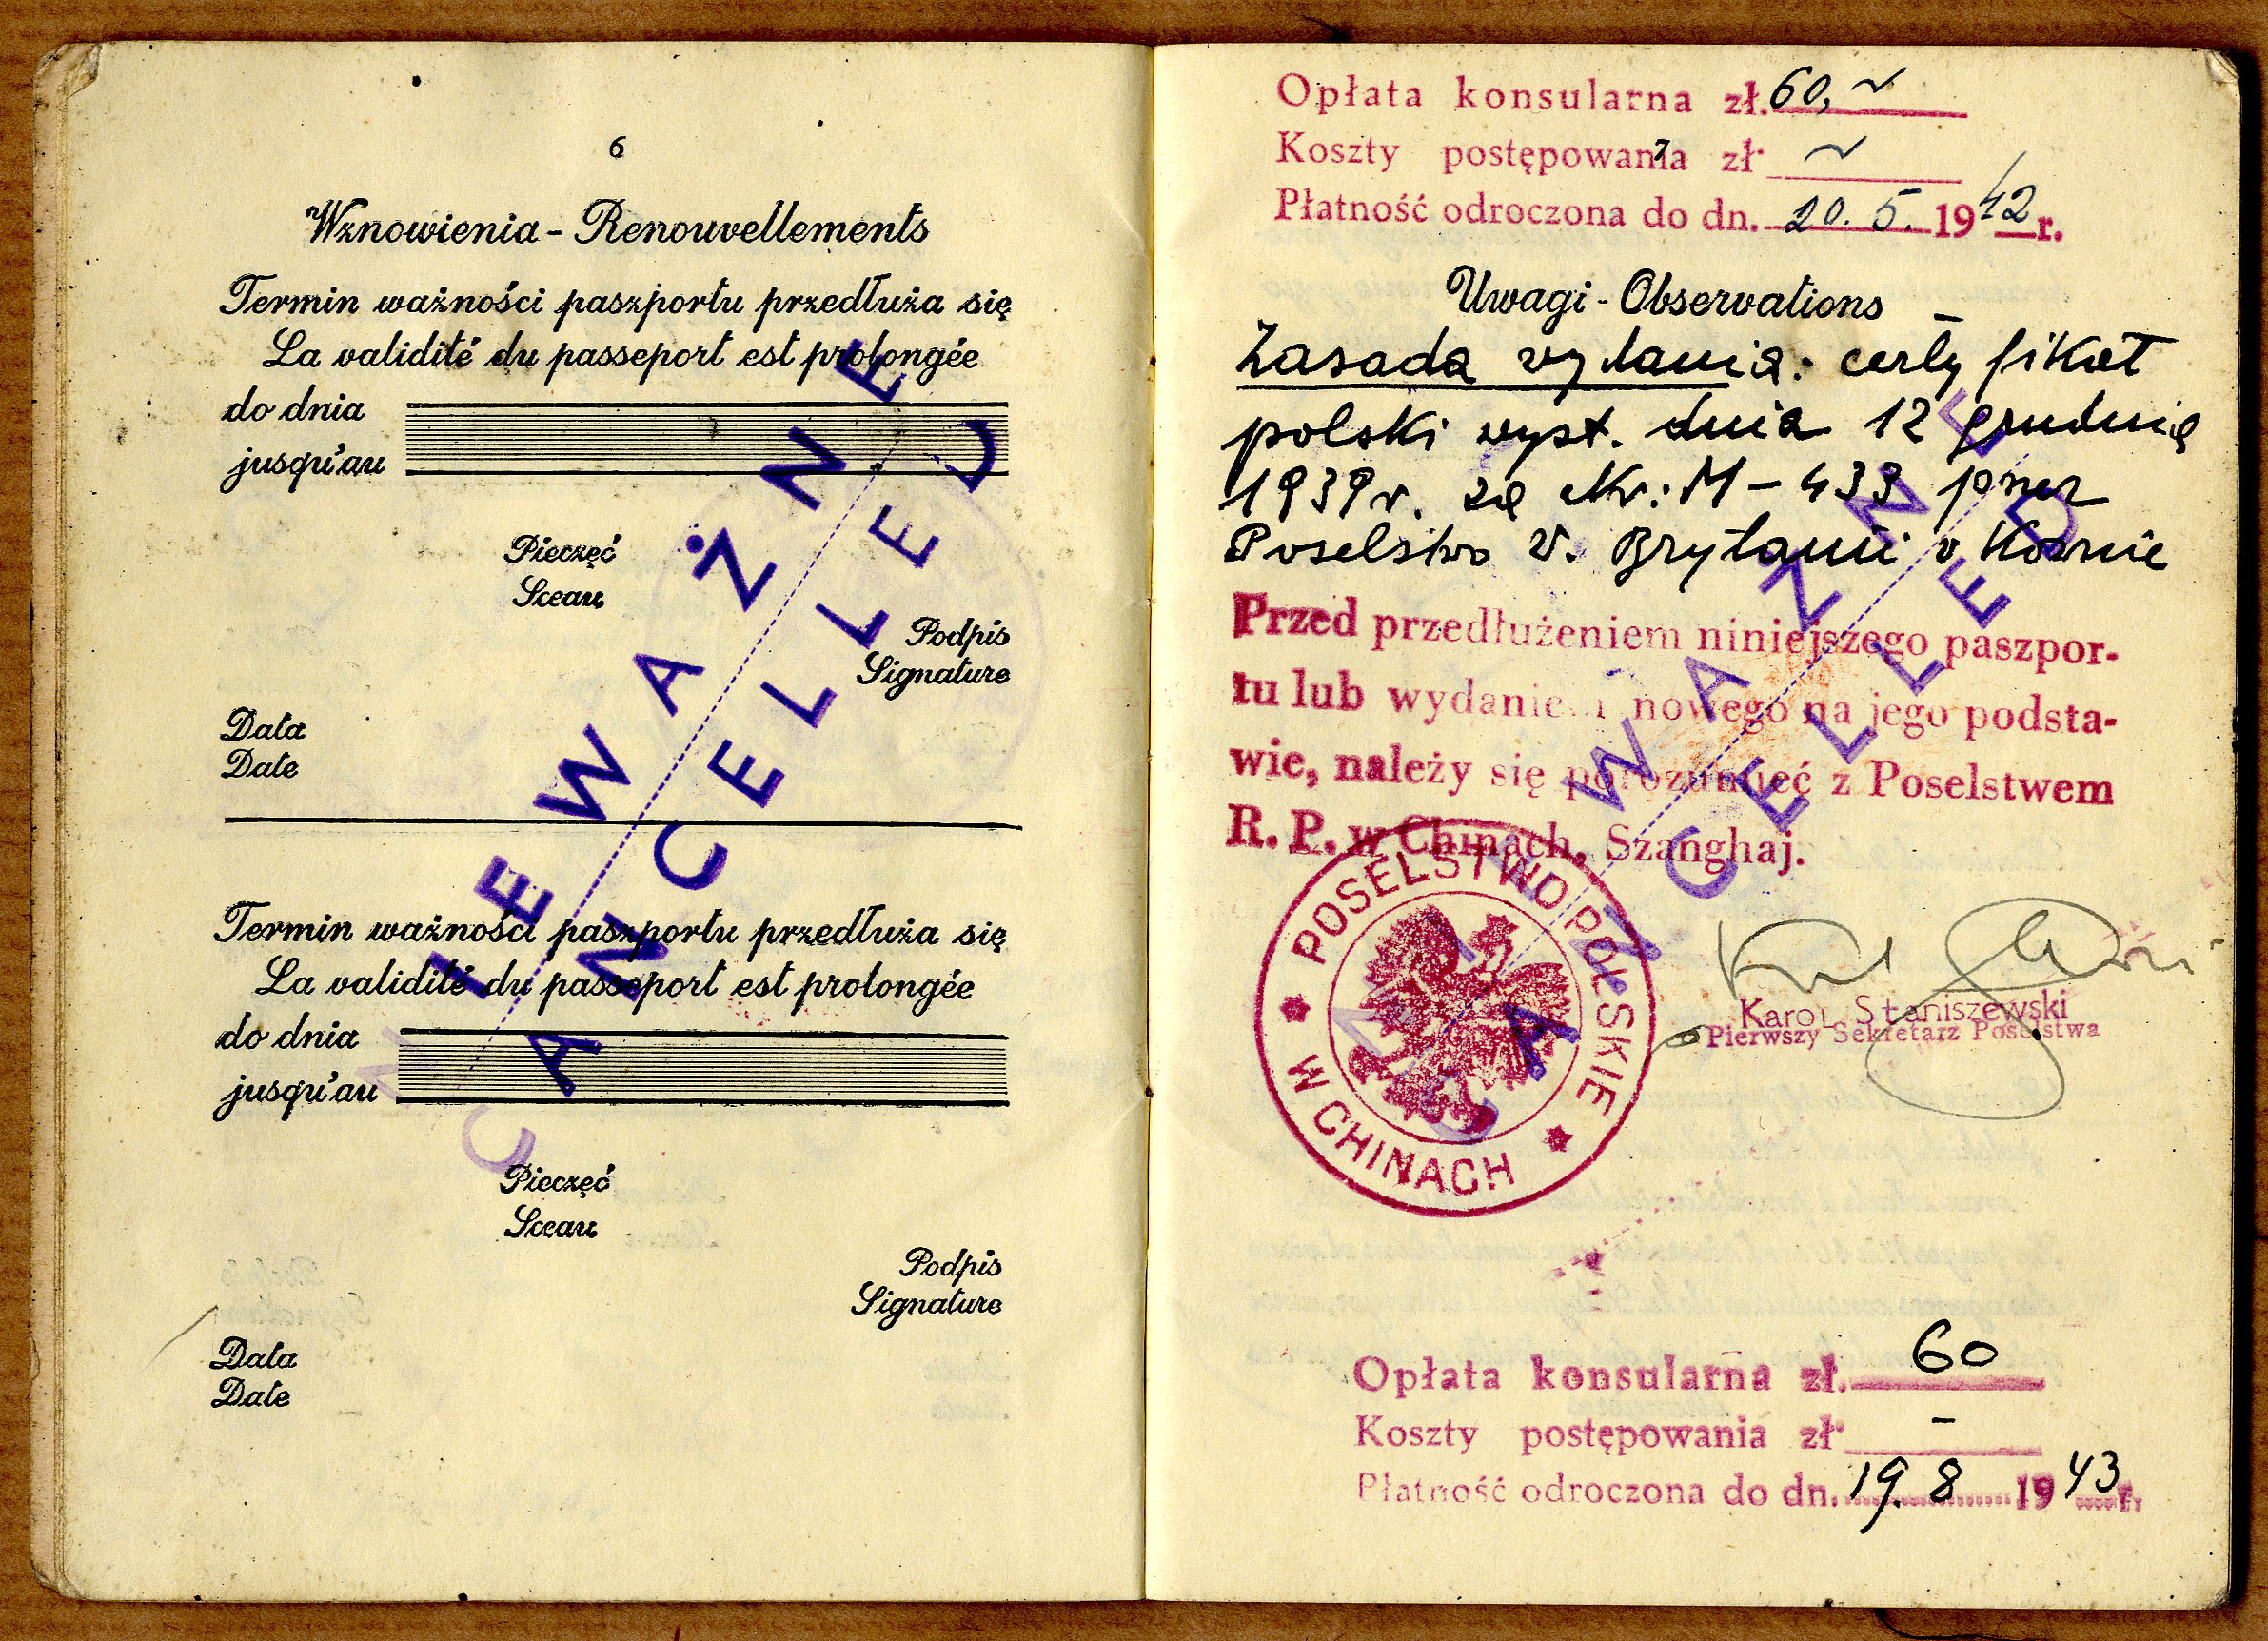 6
Wznowienia - Renouvellements
Termin ważności paszportu przedłuża się
La validité du passeport est prolongée
do dnia
jusqu'au
Pieczęć
Sceau
Podpis
Signature
Data
Date
Termin ważności paszportu przedłuża się
La validité du passeport est prolongée
do dnia
jusqu'au
Pieczęć
Sceau
Podpis
Signature
Data
Date
NIEWAŻNE
CANCELLED
Opłata konsularna zł. 60,~
7
Koszty postępowania zł. ~
Płatność odroczona do dn. 20. 5. 1942 r.
Uwagi - Observations
Zasada wydania: certyfikat
polski wyst. dnia 12 grudnia
1939 r. za Nr: M - 433 przez
Poselstwo W. Brytanii w Kownie
Przed przedłużeniem niniejszego paszpor-
tu lub wydaniem nowego na jego podsta-
wie, należy się porozumieć z Poselstwem
R. P. w Chinach, Szanghaj.
POSELSTWO POLSKIE
W CHINACH
Karol Staniszewski
Pierwszy Sekretarz Poselstwa
NIEWAŻNE
CANCELLED
Opłata konsularna zł. 60
Koszty postępowania zł. -
Płatność odroczona do dn. 19. 8 1943 r.